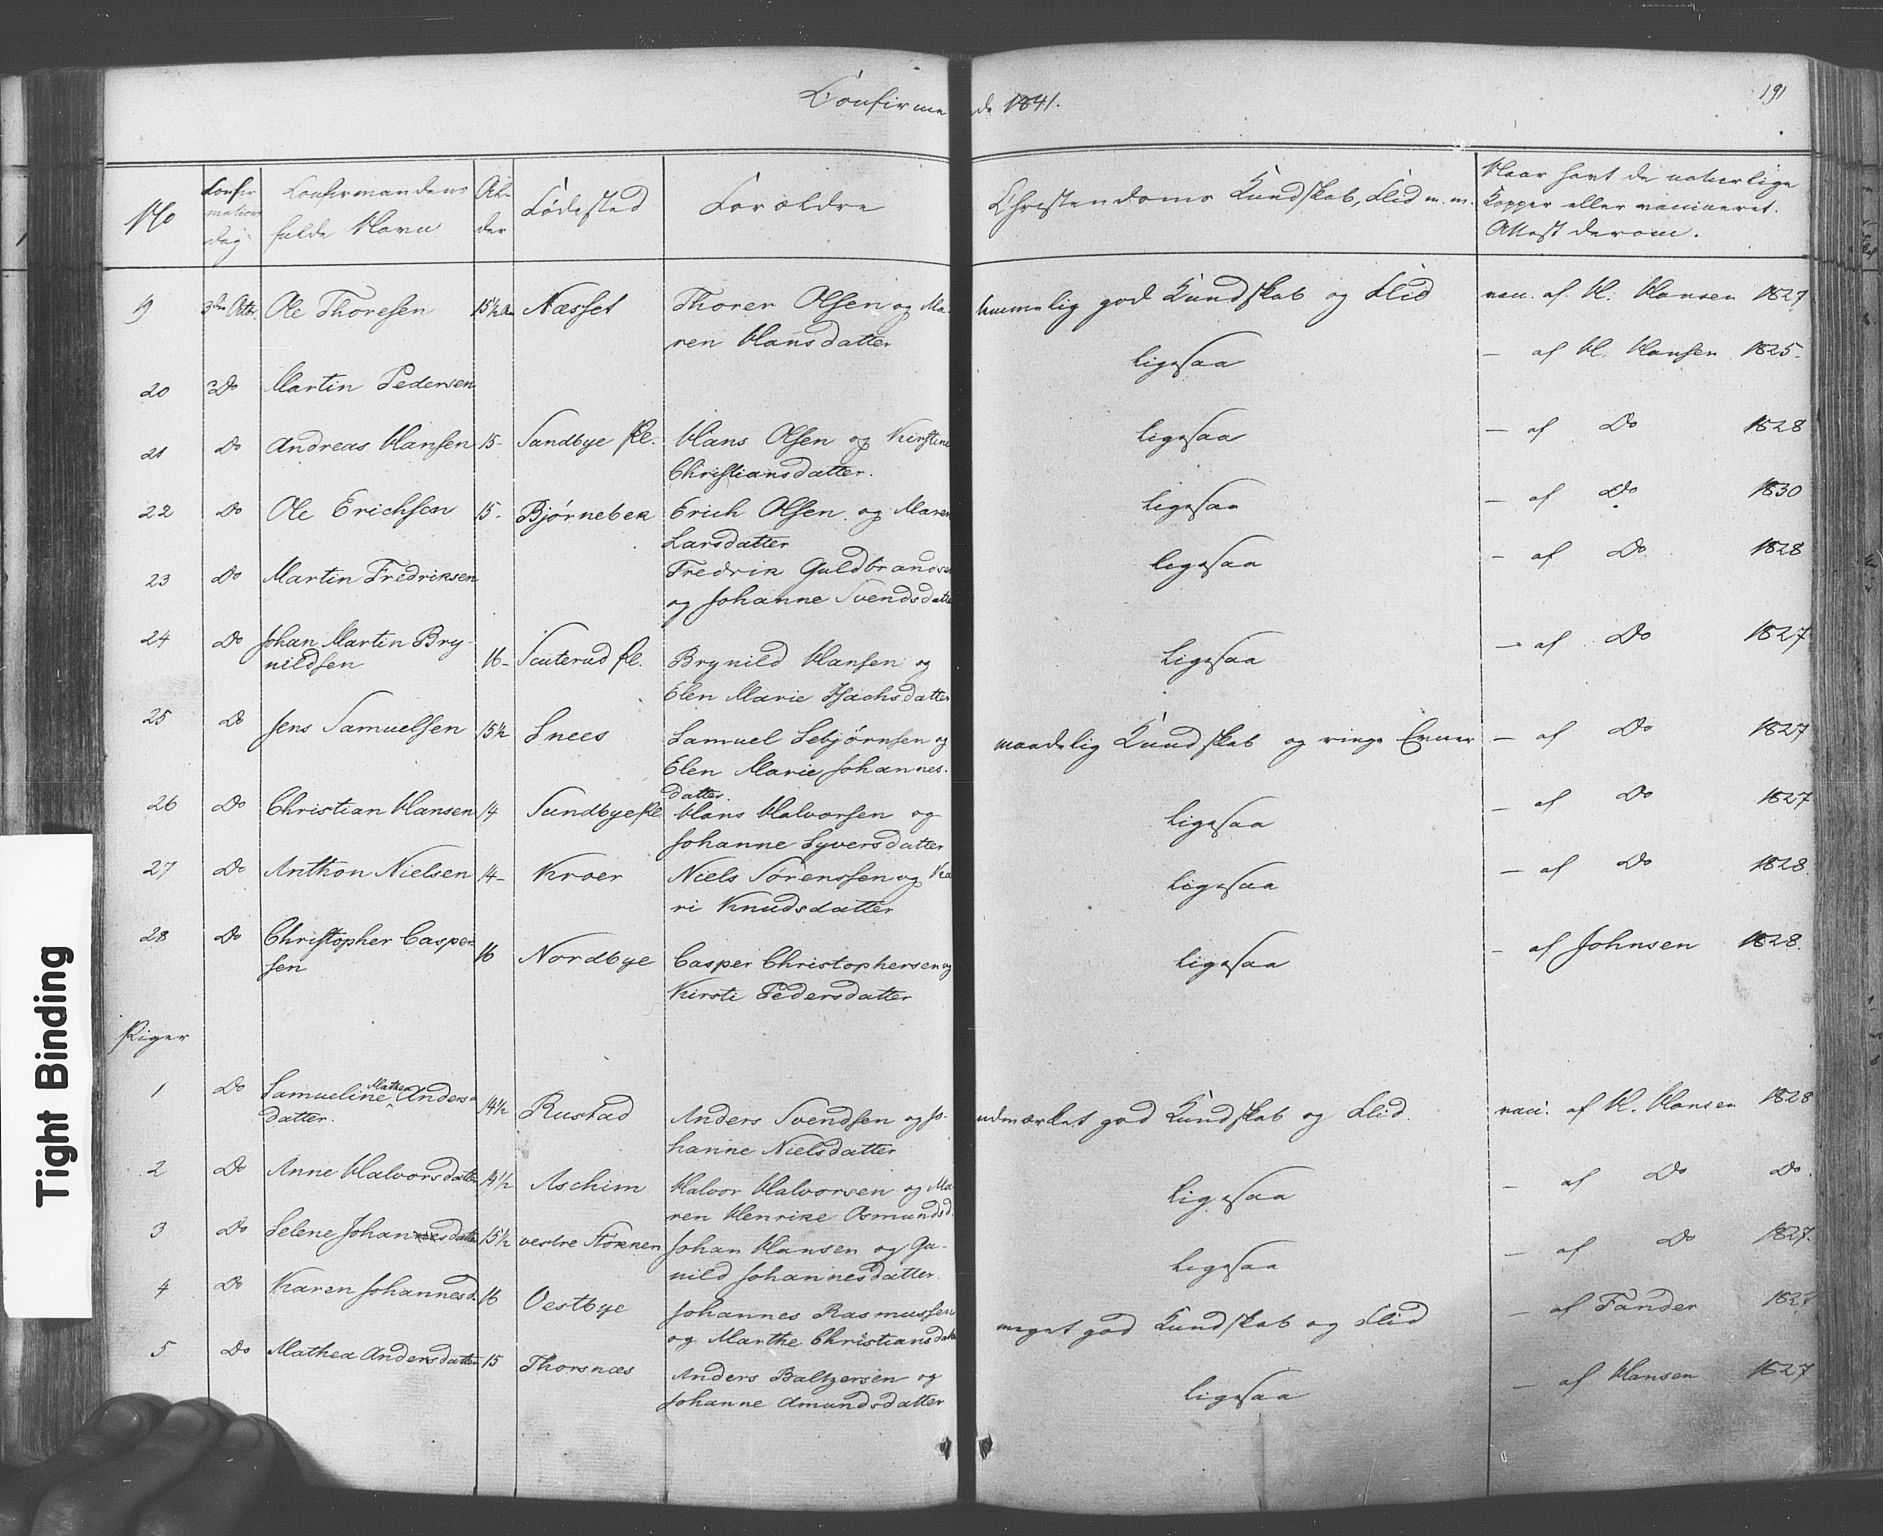 Confirmede 1841.
191
No
Confirmations dag
Confirmandens fulde Navn
Alder
Fødested
Forældre
Christendoms Kundskab, Flid m. m.
Naar havt de naturlige Kopper eller vaccineret. Attest derom.
9 3die Octbr. Ole Thoresen 15½ Næsset Thorer Olsen og Ma- temmelig god Kundskab og Flid vac. af H. Hansen 1827
ren Hansdatter
20 Do Martin Pedersen ligesaa — af H. Hansen 1825.
21 Do Andreas Hansen 15- Sandbye Pl. Hans Olsen og Kirstine ligesaa — af Do 1828
Christiansdatter.
22 Do Ole Erichsen 15- Bjørnebek Erich Olsen og Maren ligesaa — af Do 1830
Larsdatter
23 Do Martin Fredriksen Fredrik Guldbrandsen ligesaa — af Do 1828
og Johanne Svendsdatter
24 Do Johan Martin Bry-
nildsen 16- Scuterud Pl. Brynild Hansen og ligesaa — af Do 1827
Elen Marie Isachsdatter
25 Do Jens Samuelsen 15½ Snees Samuel Sebjørnsen og maadelig Kundskab og ringe Evner — af Do 1827
Elen Marie Johannes-
datter.
26 Do Christian Hansen 14 Sundbye Pl. Hans Halvorsen og ligesaa — af Do 1827
Johanne Syversdatter
27 Do Anthon Nielsen 14- Kroer Niels Sørenssen og Ka ligesaa — af Do 1828.
ri Knudsdatter
28 Do Christopher Casper
sen 16 Nordbye Casper Christophersen og ligesaa — af Johnsen 1828.
Kirsti Pedersdatter
Piger
1 Do Samueline Mathea Anders-
datter. 14½ Rustad Anders Svendsen og Jo- udmærket god Kundskab og Flid. vacc. af H. Hansen 1828
hanne Nielsdatter
2 Do Anne Halvorsdatter 14½ Aschim Halvor Halvorsen og Ma- ligesaa — af Do Do.
ren Henrike Osmundsd.
3 Do Selene Johannesdatter 15½ vestre Støkken Johan Hansen og Gu- ligesaa — af Do 1827.
nild Johannesdatter.
4 Do Karen Johannesd. 16 Oestbye Johannes Rasmussen meget god Kundskab og Flid — af Fander 1827
og Marthe Christiansdatter
5 Do Mathea Andersdatter 15 Thorsnæs Anders Baltzersen og ligesaa — af Hansen 1827
Johanne Amundsdatter
Tight Binding